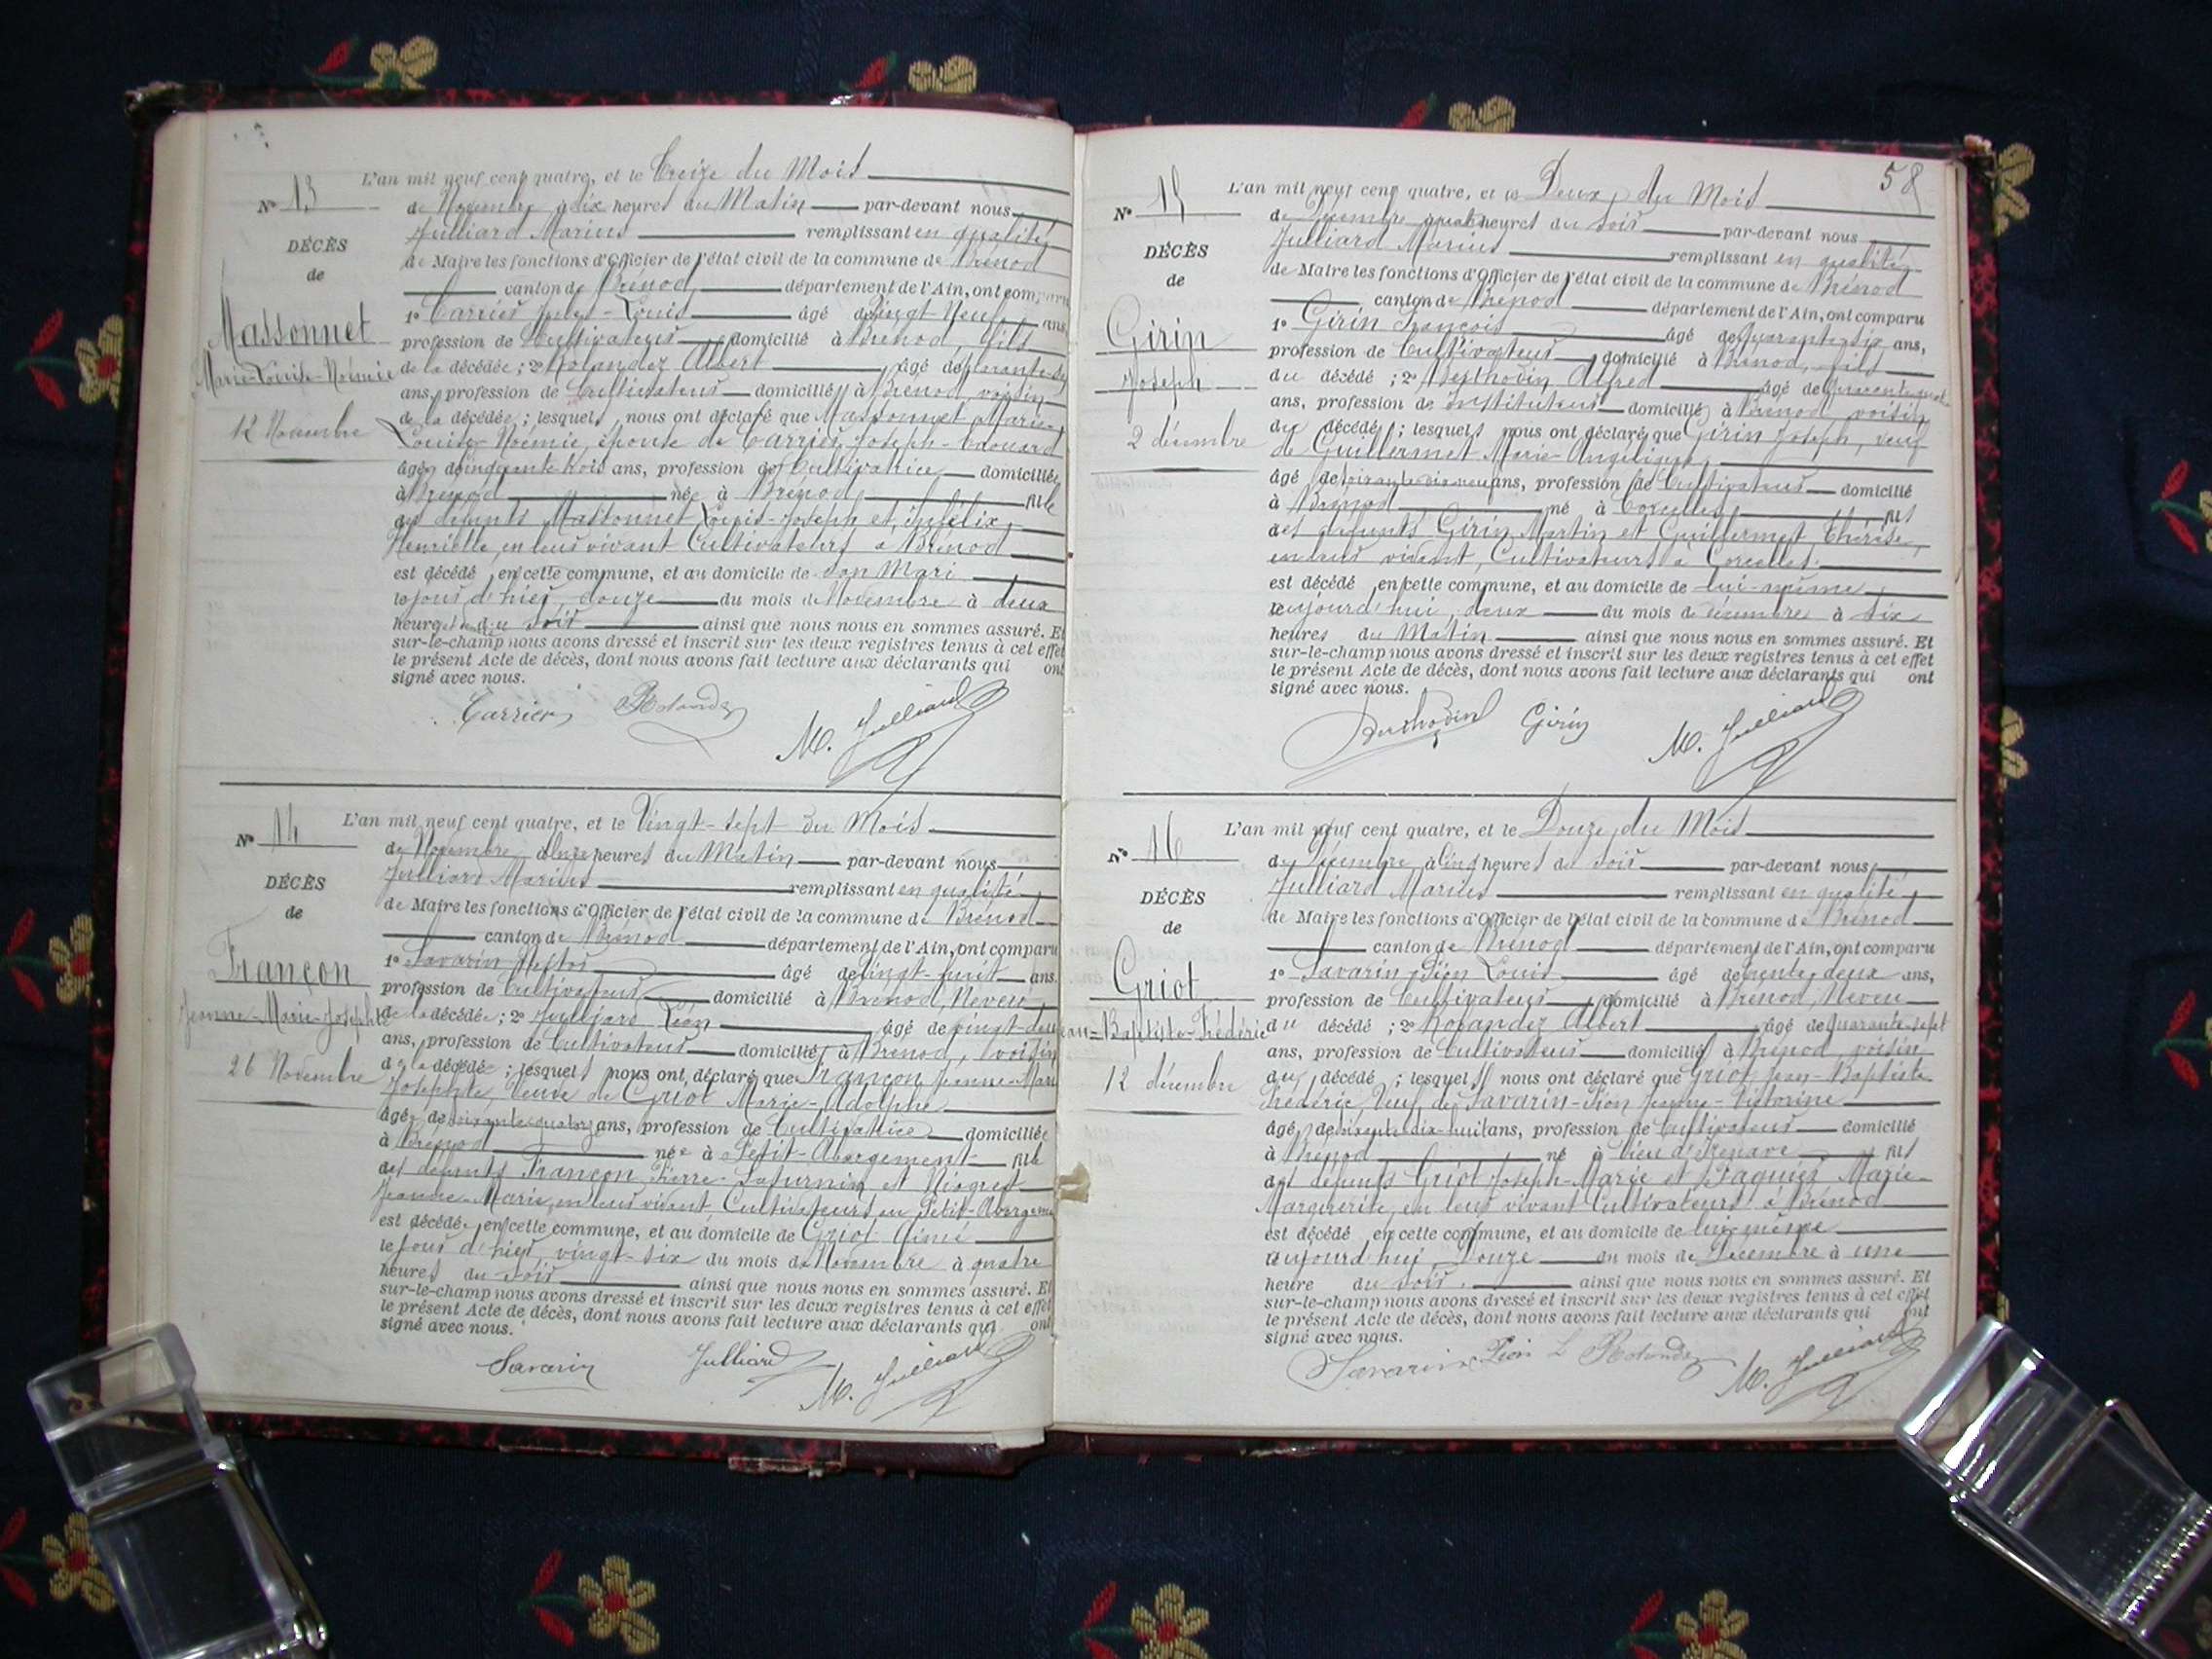 L'an mil neuf cent quatre, et le Treize du Mois
N° 13
de Novembre à dix heures du Matin par-devant nous
Julliard Marius remplissant en qualité
DÉCÈS
de Maire les fonctions d'Officier de l'état civil de la commune de Brénod
de
canton de Brénod département de l'Ain, ont comparu
1° Carrier Louis âgé de vingt-neuf ans
Massonnet
profession de Cultivateur domicilié à Brénod, fils
Marie-Louise-Noémie
de la décédée ; 2° Rolandez Albert âgé de
ans, profession de Cultivateur domicilié à Brénod, voisin
de la décédée ; lesquels nous ont déclaré que Massonnet Marie
12 Novembre
Louise-Noémie, épouse de Carrier Joseph-Edouard
âgée de cinquante trois ans, profession de Cultivatrice domiciliée
à Brénod née à Brénod fille
des défunts Massonnet Louis-Joseph et
Henriette, en leur vivant Cultivateurs à Brénod
est décédé en cette commune, et au domicile de son Mari
le jour d'hier, douze du mois de Novembre à deux
heures du soir ainsi que nous nous en sommes assuré. Et
sur-le-champ nous avons dressé et inscrit sur les deux registres tenus à cet effet
le présent Acte de décès, dont nous avons fait lecture aux déclarants qui ont
signé avec nous.
Carrier Rolandez
M. Julliard
L'an mil neuf cent quatre, et le Vingt-sept du Mois
N° 14
de Novembre à heures du Matin par-devant nous
Julliard Marius remplissant en qualité
DÉCÈS
de Maire les fonctions d'Officier de l'état civil de la commune de Brénod
de
canton de Brénod département de l'Ain, ont comparu
1° Savarin âgé de vingt-huit ans
Françon
profession de Cultivateur domicilié à Brénod, Neveu
Jeanne-Marie-Josephte
de la décédée ; 2° Julliard Léon âgé de vingt-deux
ans, profession de Cultivateur domicilié à Brénod, voisin
de la décédé ; lesquels nous ont déclaré que Françon Jeanne-Marie
26 Novembre
Josephte, Veuve de Griot Marie-Adolphe
âgée de soixante quatorze ans, profession de Cultivatrice domiciliée
à Brénod née à Petit-Abergement fille
des défunts Françon Pierre-Saturnin et
Jeanne-Marie, en leur vivant Cultivateurs au Petit-Abergement
est décédée en cette commune, et au domicile de Griot Aimé
le jour d'hier, vingt-six du mois de Novembre à quatre
heures du soir ainsi que nous nous en sommes assuré. Et
sur-le-champ nous avons dressé et inscrit sur les deux registres tenus à cet effet
le présent Acte de décès, dont nous avons fait lecture aux déclarants qui ont
signé avec nous.
Savarin Julliard M. Julliard
58
L'an mil neuf cent quatre, et le Deux du Mois
N° 15
de Décembre à quatre heures du soir par-devant nous
Julliard Marius remplissant en qualité
DÉCÈS
de Maire les fonctions d'Officier de l'état civil de la commune de Brénod
de
canton de Brénod département de l'Ain, ont comparu
1° Girin François âgé de quarante six ans,
Girin
profession de Cultivateur domicilié à Brénod, fils
Joseph
du décédé ; 2° Berthodin Alfred âgé de
ans, profession de Instituteur domicilié à Brénod voisin
2 décembre
du décédé ; lesquels nous ont déclaré que Girin Joseph, veuf
de Guillermet Marie-Angélique
âgé de soixante dix neuf ans, profession de Cultivateur domicilié
à Brénod né à Corcelles fils
des défunts Girin Martin et Guillermet Thérèse
en leur vivant, Cultivateurs à Corcelles.
est décédé en cette commune, et au domicile de lui-même
aujourd'hui, deux du mois de décembre à six
heures du Matin ainsi que nous nous en sommes assuré. Et
sur-le-champ nous avons dressé et inscrit sur les deux registres tenus à cet effet
le présent Acte de décès, dont nous avons fait lecture aux déclarants qui ont
signé avec nous.
Berthodin Girin M. Julliard
L'an mil neuf cent quatre, et le Douze du Mois
N° 16
de Décembre à Cinq heures du soir par-devant nous
Julliard Marius remplissant en qualité
DÉCÈS
de Maire les fonctions d'Officier de l'état civil de la commune de Brénod
de
canton de Brénod département de l'Ain, ont comparu
1° Savarin Pion Louis âgé de trente deux ans,
Griot
profession de Cultivateur domicilié à Brénod, Neveu
Jean-Baptiste-Frédéric
du décédé ; 2° Rolandez Albert âgé de quarante-sept
ans, profession de Cultivateur domicilié à Brénod, voisin
12 décembre
du décédé ; lesquels nous ont déclaré que Griot Jean-Baptiste
Frédéric, Veuf de Savarin-Pion Jeanne-Victorine
âgé de soixante-dix-huit ans, profession de Cultivateur domicilié
à Brénod né à Vieu d'Izenave fils
des défunts Griot Joseph-Marie et Marie-
Marguerite, en leur vivant Cultivateurs à Brénod
est décédé en cette commune, et au domicile de lui-même
aujourd'hui, Douze du mois de Décembre à une
heure du soir. ainsi que nous nous en sommes assuré. Et
sur-le-champ nous avons dressé et inscrit sur les deux registres tenus à cet effet
le présent Acte de décès, dont nous avons fait lecture aux déclarants qui ont
signé avec nous.
Savarin Pion L Rolandez M. Julliard